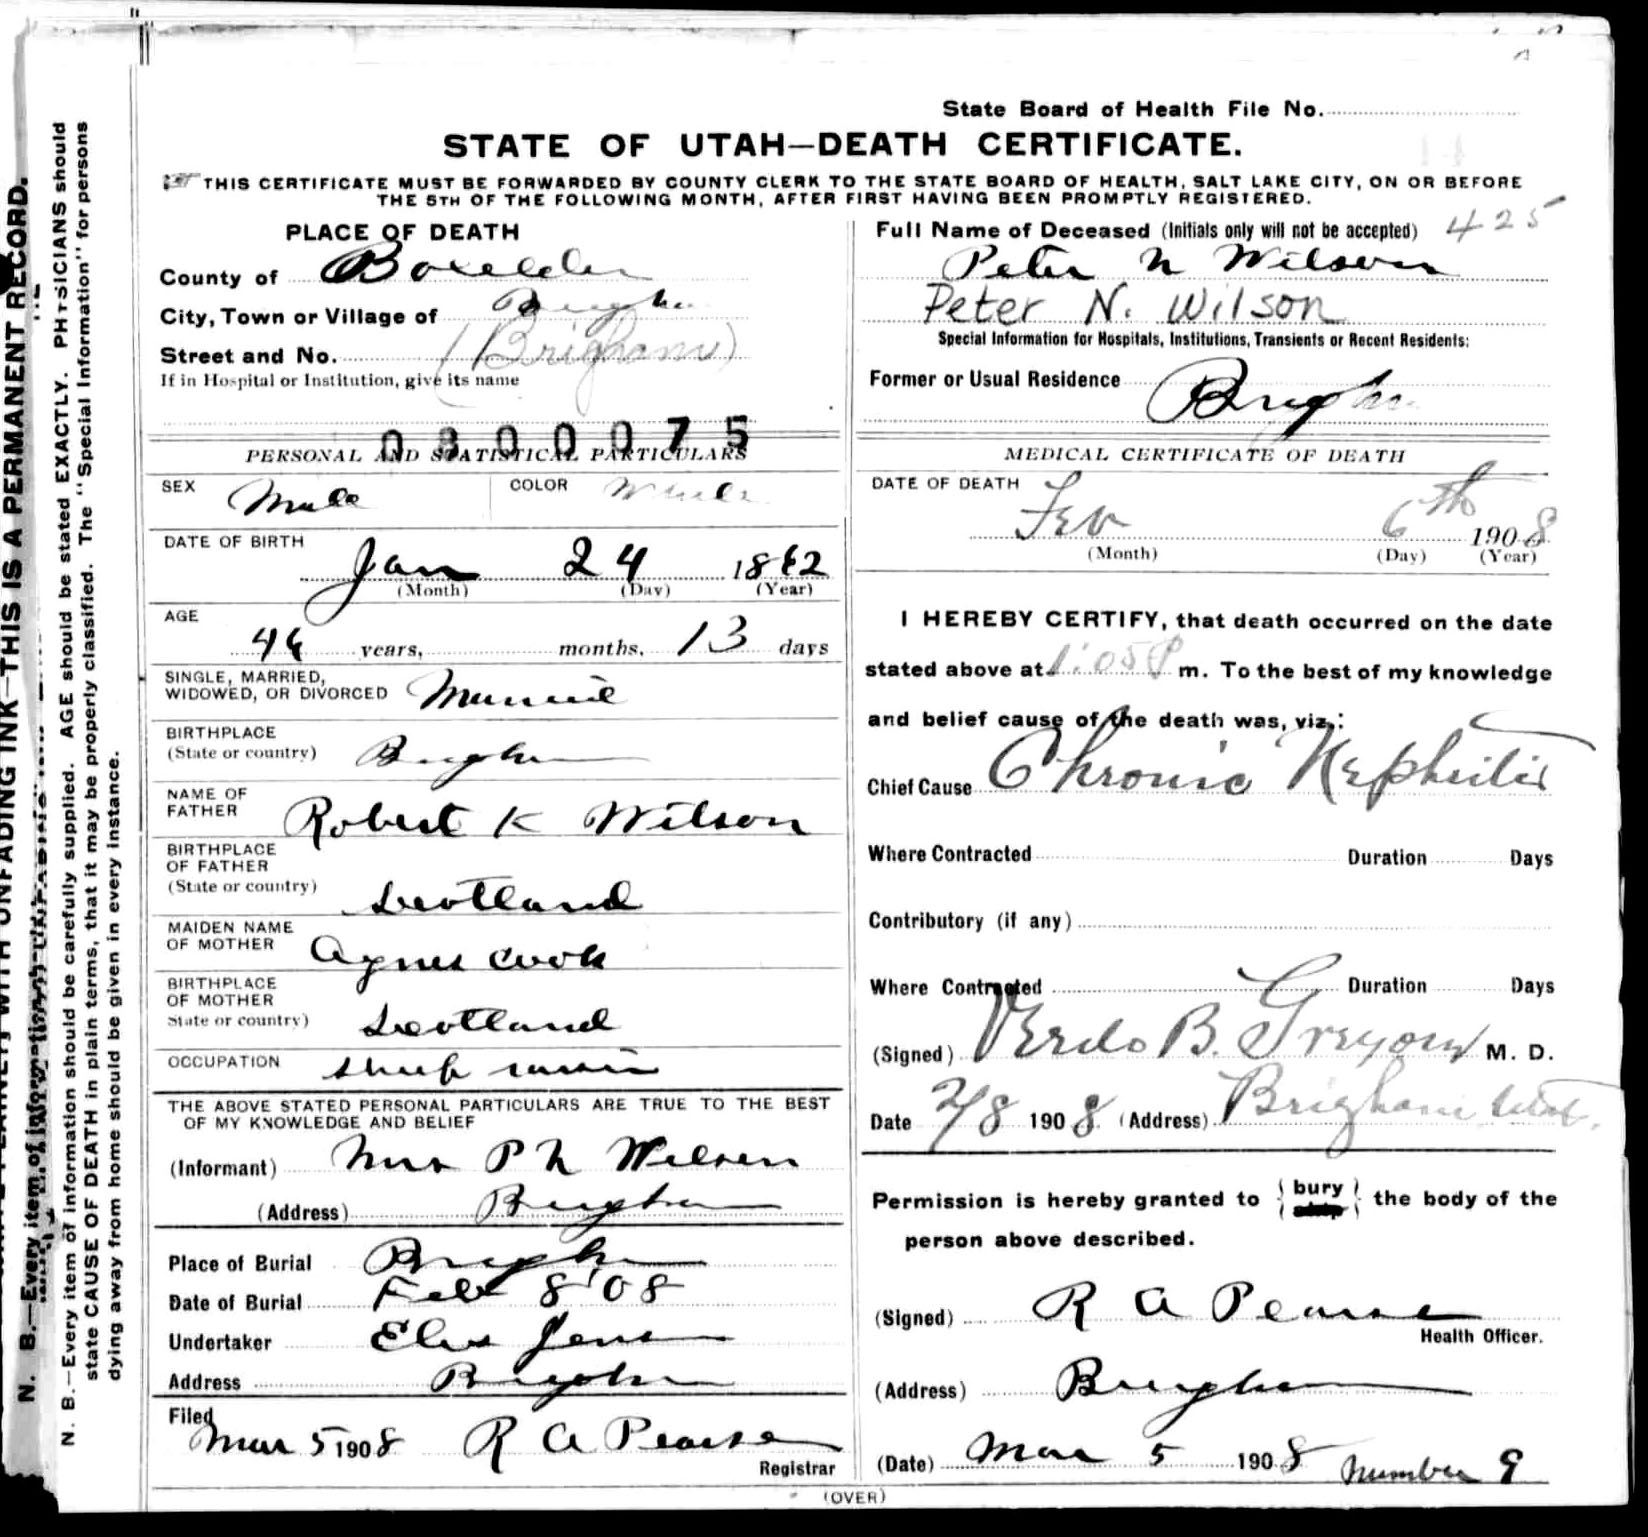 State Board of Health File No.
STATE OF UTAH—DEATH CERTIFICATE.
THIS CERTIFICATE MUST BE FORWARDED BY COUNTY CLERK TO THE STATE BOARD OF HEALTH, SALT LAKE CITY, ON OR BEFORE
THE 5TH OF THE FOLLOWING MONTH, AFTER FIRST HAVING BEEN PROMPTLY REGISTERED.
PLACE OF DEATH
County of Boxelder
City, Town or Village of Brigham
Street and No. (Brigham)
If in Hospital or Institution, give its name
0800075
PERSONAL AND STATISTICAL PARTICULARS
SEX Male COLOR White
DATE OF BIRTH
Jan 24 1862
(Month) (Day) (Year)
AGE
46 years, months, 13 days
SINGLE, MARRIED,
WIDOWED, OR DIVORCED Married
BIRTHPLACE
(State or country) Brigham
NAME OF
FATHER Robert K Wilson
BIRTHPLACE
OF FATHER
(State or country) Scotland
MAIDEN NAME
OF MOTHER Agnes Cook
BIRTHPLACE
OF MOTHER
State or country) Scotland
OCCUPATION Sheep raising
THE ABOVE STATED PERSONAL PARTICULARS ARE TRUE TO THE BEST
OF MY KNOWLEDGE AND BELIEF
(Informant) Mrs P N Wilson
(Address) Brigham
Place of Burial Brigham
Date of Burial Feb 8 '08
Undertaker Jensen
Address Brigham
Filed
Mar 5 1908 R A Pearse
Registrar
425
Full Name of Deceased (Initials only will not be accepted)
Peter N Wilson
Peter N. Wilson
Special Information for Hospitals, Institutions, Transients or Recent Residents:
Former or Usual Residence Brigham
MEDICAL CERTIFICATE OF DEATH
DATE OF DEATH
Feb 6th 1908
(Month) (Day) (Year)
I HEREBY CERTIFY, that death occurred on the date
stated above at 1:05 P m. To the best of my knowledge
and belief cause of the death was, viz.:
Chief Cause Chronic Nephritis
Where Contracted Duration Days
Contributory (if any)
Where Contracted Duration Days
(Signed) B. M. D.
Date 2/8 1908 (Address) Brigham Utah.
Permission is hereby granted to { bury
ship } the body of the
person above described.
(Signed) R A Pearse
Health Officer.
(Address) Brigham
(Date) Mar 5 1908 Number 9
(OVER)
N. B.—Every item of information should be carefully supplied. AGE should be stated EXACTLY. PHYSICIANS should
state CAUSE OF DEATH in plain terms, that it may be properly classified. The "Special Information" for persons
dying away from home should be given in every instance.
WITH UNFADING INK—THIS IS A PERMANENT RECORD.
N. B.—Every item of